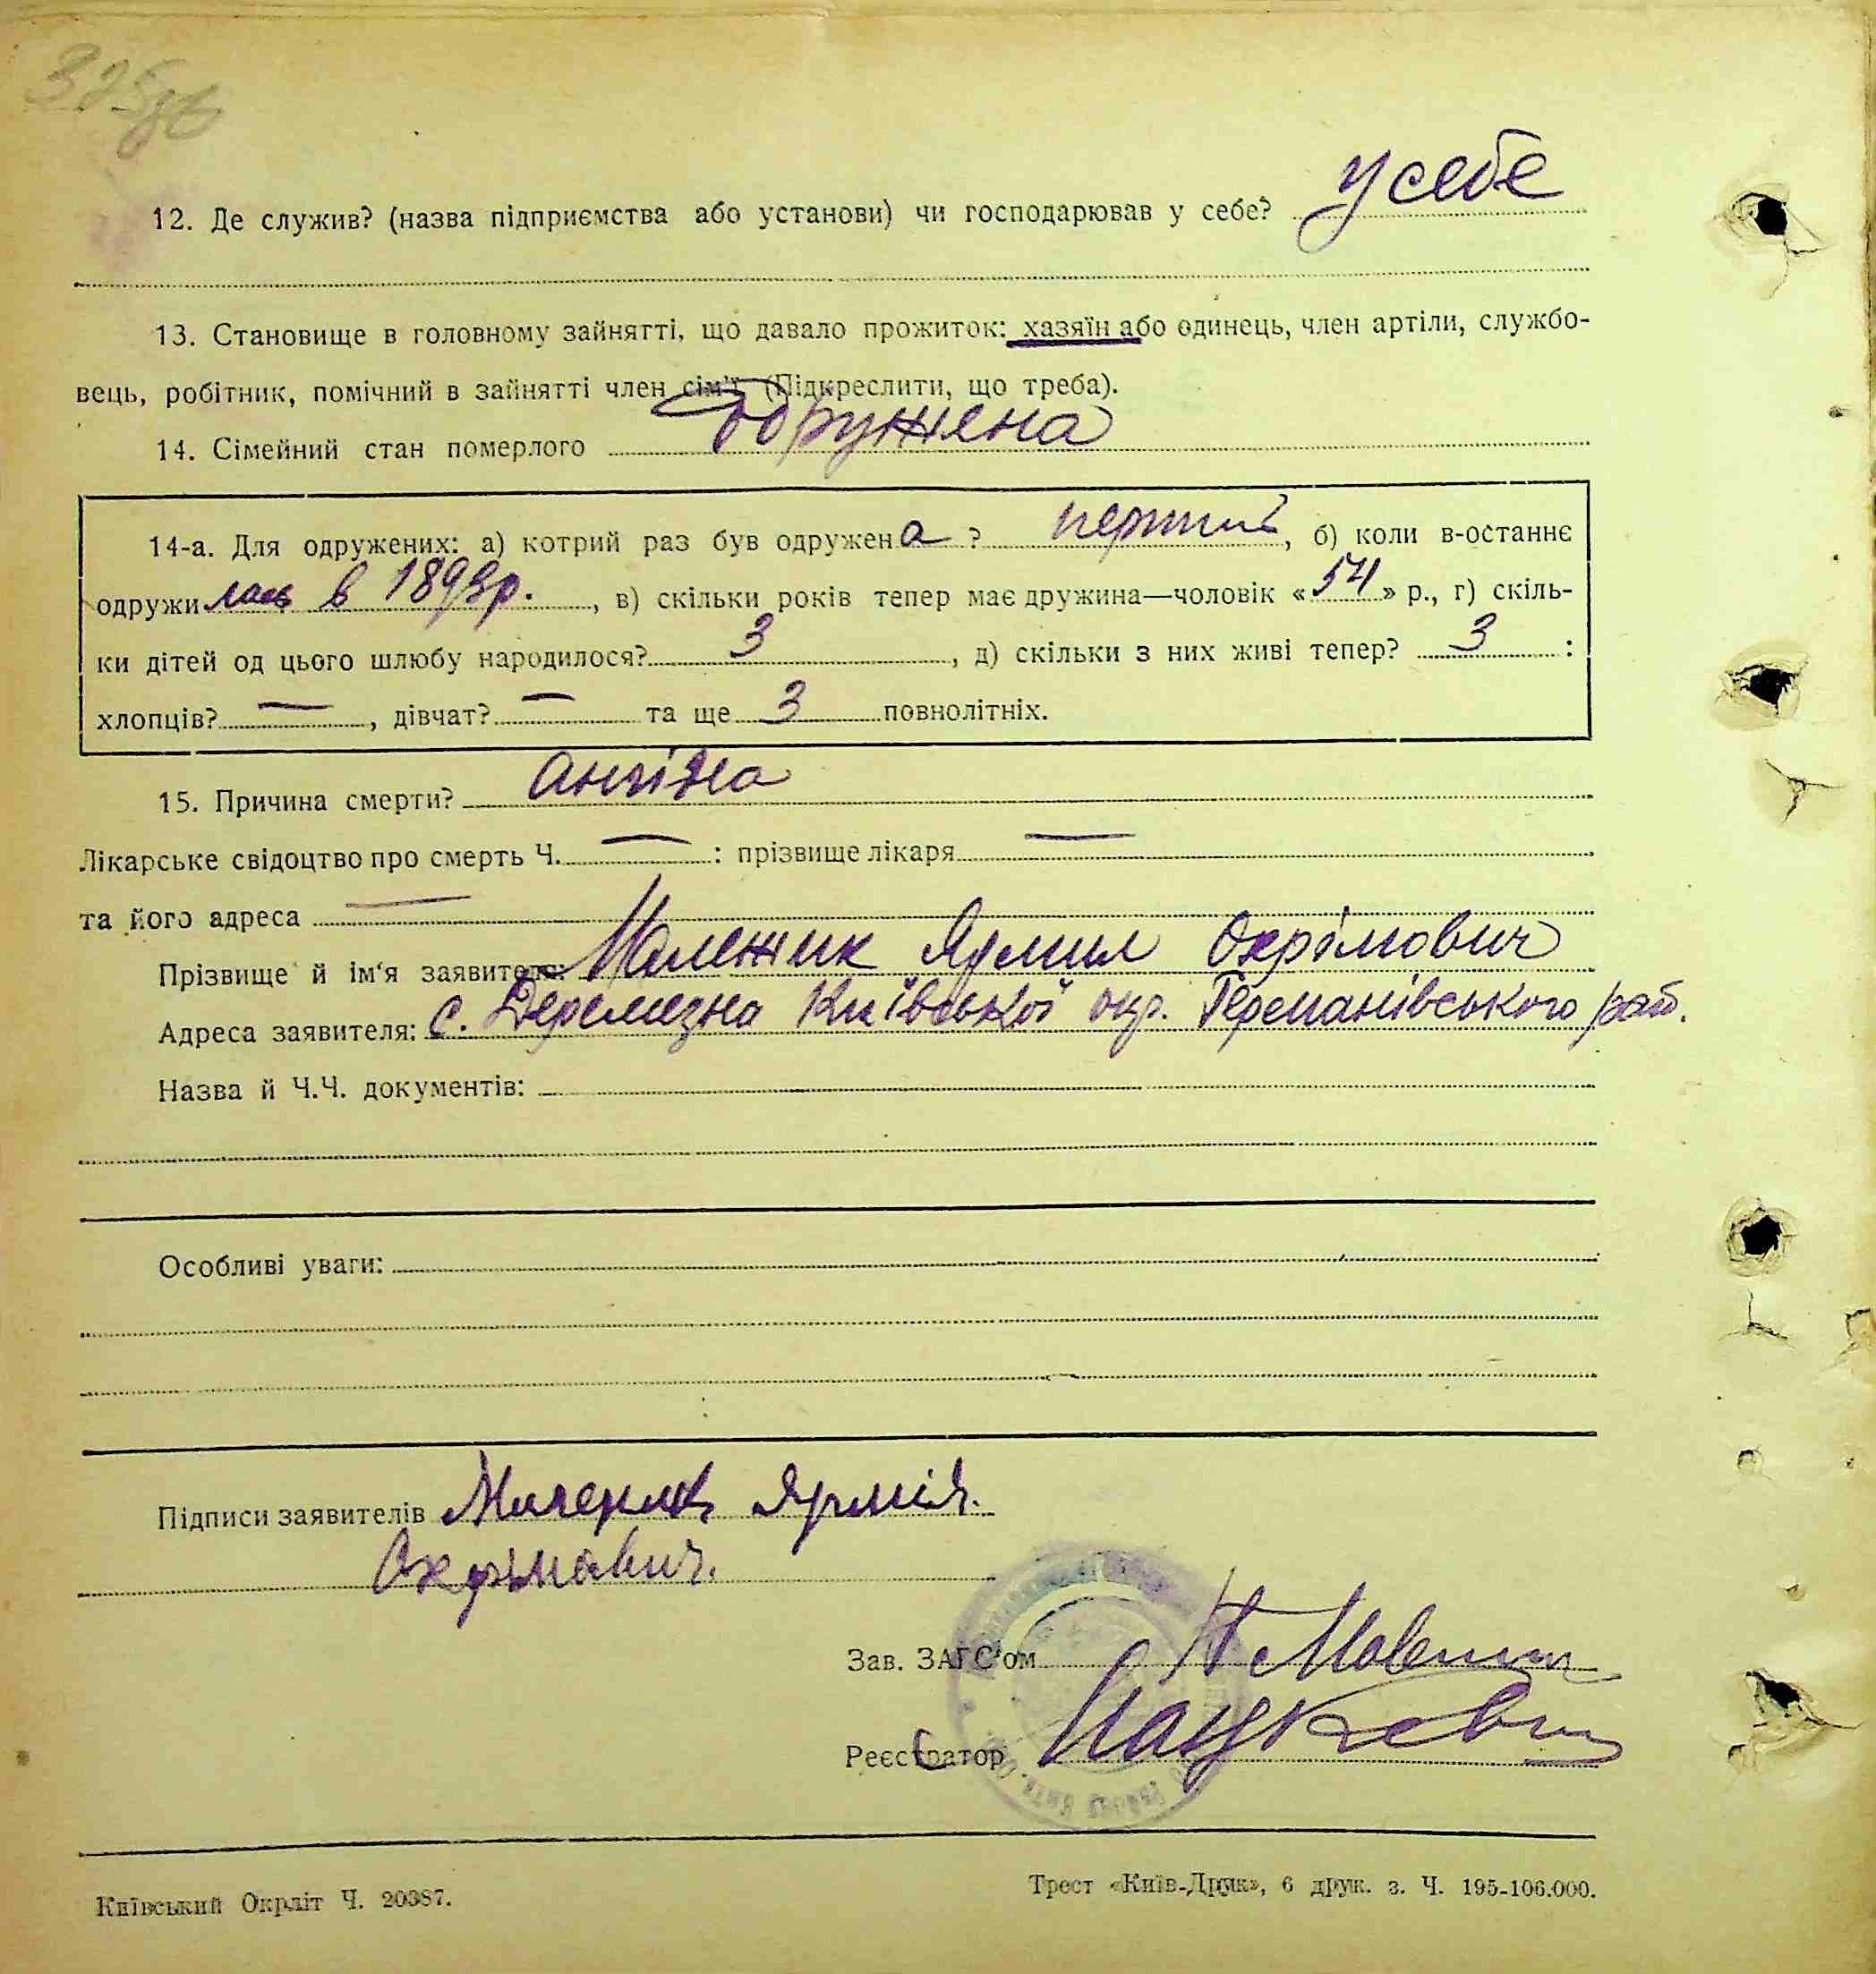 325зв
12. Де служив? (назва підприємства або установи) чи господарював у себе? у себе
13. Становище в головному зайнятті, що давало прожиток: хазяїн або одинець, член артіли, службо-
вець, робітник, помічний в зайнятті член сім'ї (Підкреслити, що треба).
14. Сімейний стан померлого одружена
14-а. Для одружених: а) котрий раз був одружена? перший, б) коли в-останнє
одружилась в 1893р., в) скільки років тепер має дружина—чоловік «54» р., г) скіль-
ки дітей од цього шлюбу народилося? 3, д) скільки з них живі тепер? 3 :
хлопців? —, дівчат? — та ще 3 повнолітніх.
15. Причина смерти? Ангіна
Лікарське свідоцтво про смерть Ч. — : прізвище лікаря —
та його адреса —
Прізвище й ім'я заявителя: Охрімович
Адреса заявителя: с. Деремезна Київської окр. Германівського рай.
Назва й Ч.Ч. документів:
Особливі уваги:
Підписи заявителів
Охрімович.
Зав. ЗАГС'ом
Реєстратор Яцкевич
Київський Окрліт Ч. 20387.
Трест «Київ-Друк», 6 друк. з. Ч. 195-106.000.